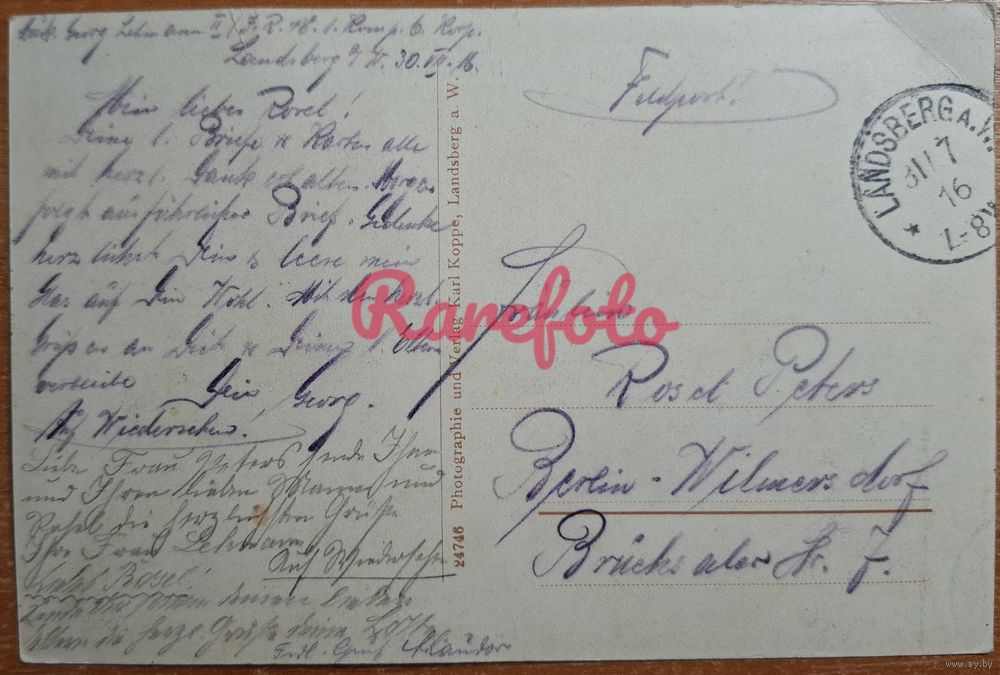 Georg Lehmann II / J. R. 48. 1. Komp. 6. Korp.
Landsberg a/W. 30.VII.16.
Mein liebes Rosel!
Deine l. Briefe u. Karten alle
mit herzl. Dank erhalten. Morgen
folgt ausführlicher Brief. Gedenke
herzlichst Dein u. leere mein
Glas auf Dein Wohl. Mit den herzl.
Grüßen an Dich u. Deine l. Eltern
verbleibe Dein Georg.
Auf Wiedersehen.
Liebe Frau Peters sende Ihnen
und Ihren lieben Mann und
Rosel die herzlichsten Grüße
Ihre Frau Lehmann
Auf Wiedersehn
Liebe Rosel!
deinen lieben
Eltern die herzl. Grüße deine
Frdl. Gruß
24746 Photographie und Verlag Karl Koppe, Landsberg a W.
Feldpost!
LANDSBERG A. W.
31 7
16
7-8V
Fräulein
Rosel Peters
Berlin-Wilmersdorf
Bruchsaler Str. 7.
Ranefoto
www.ay.by